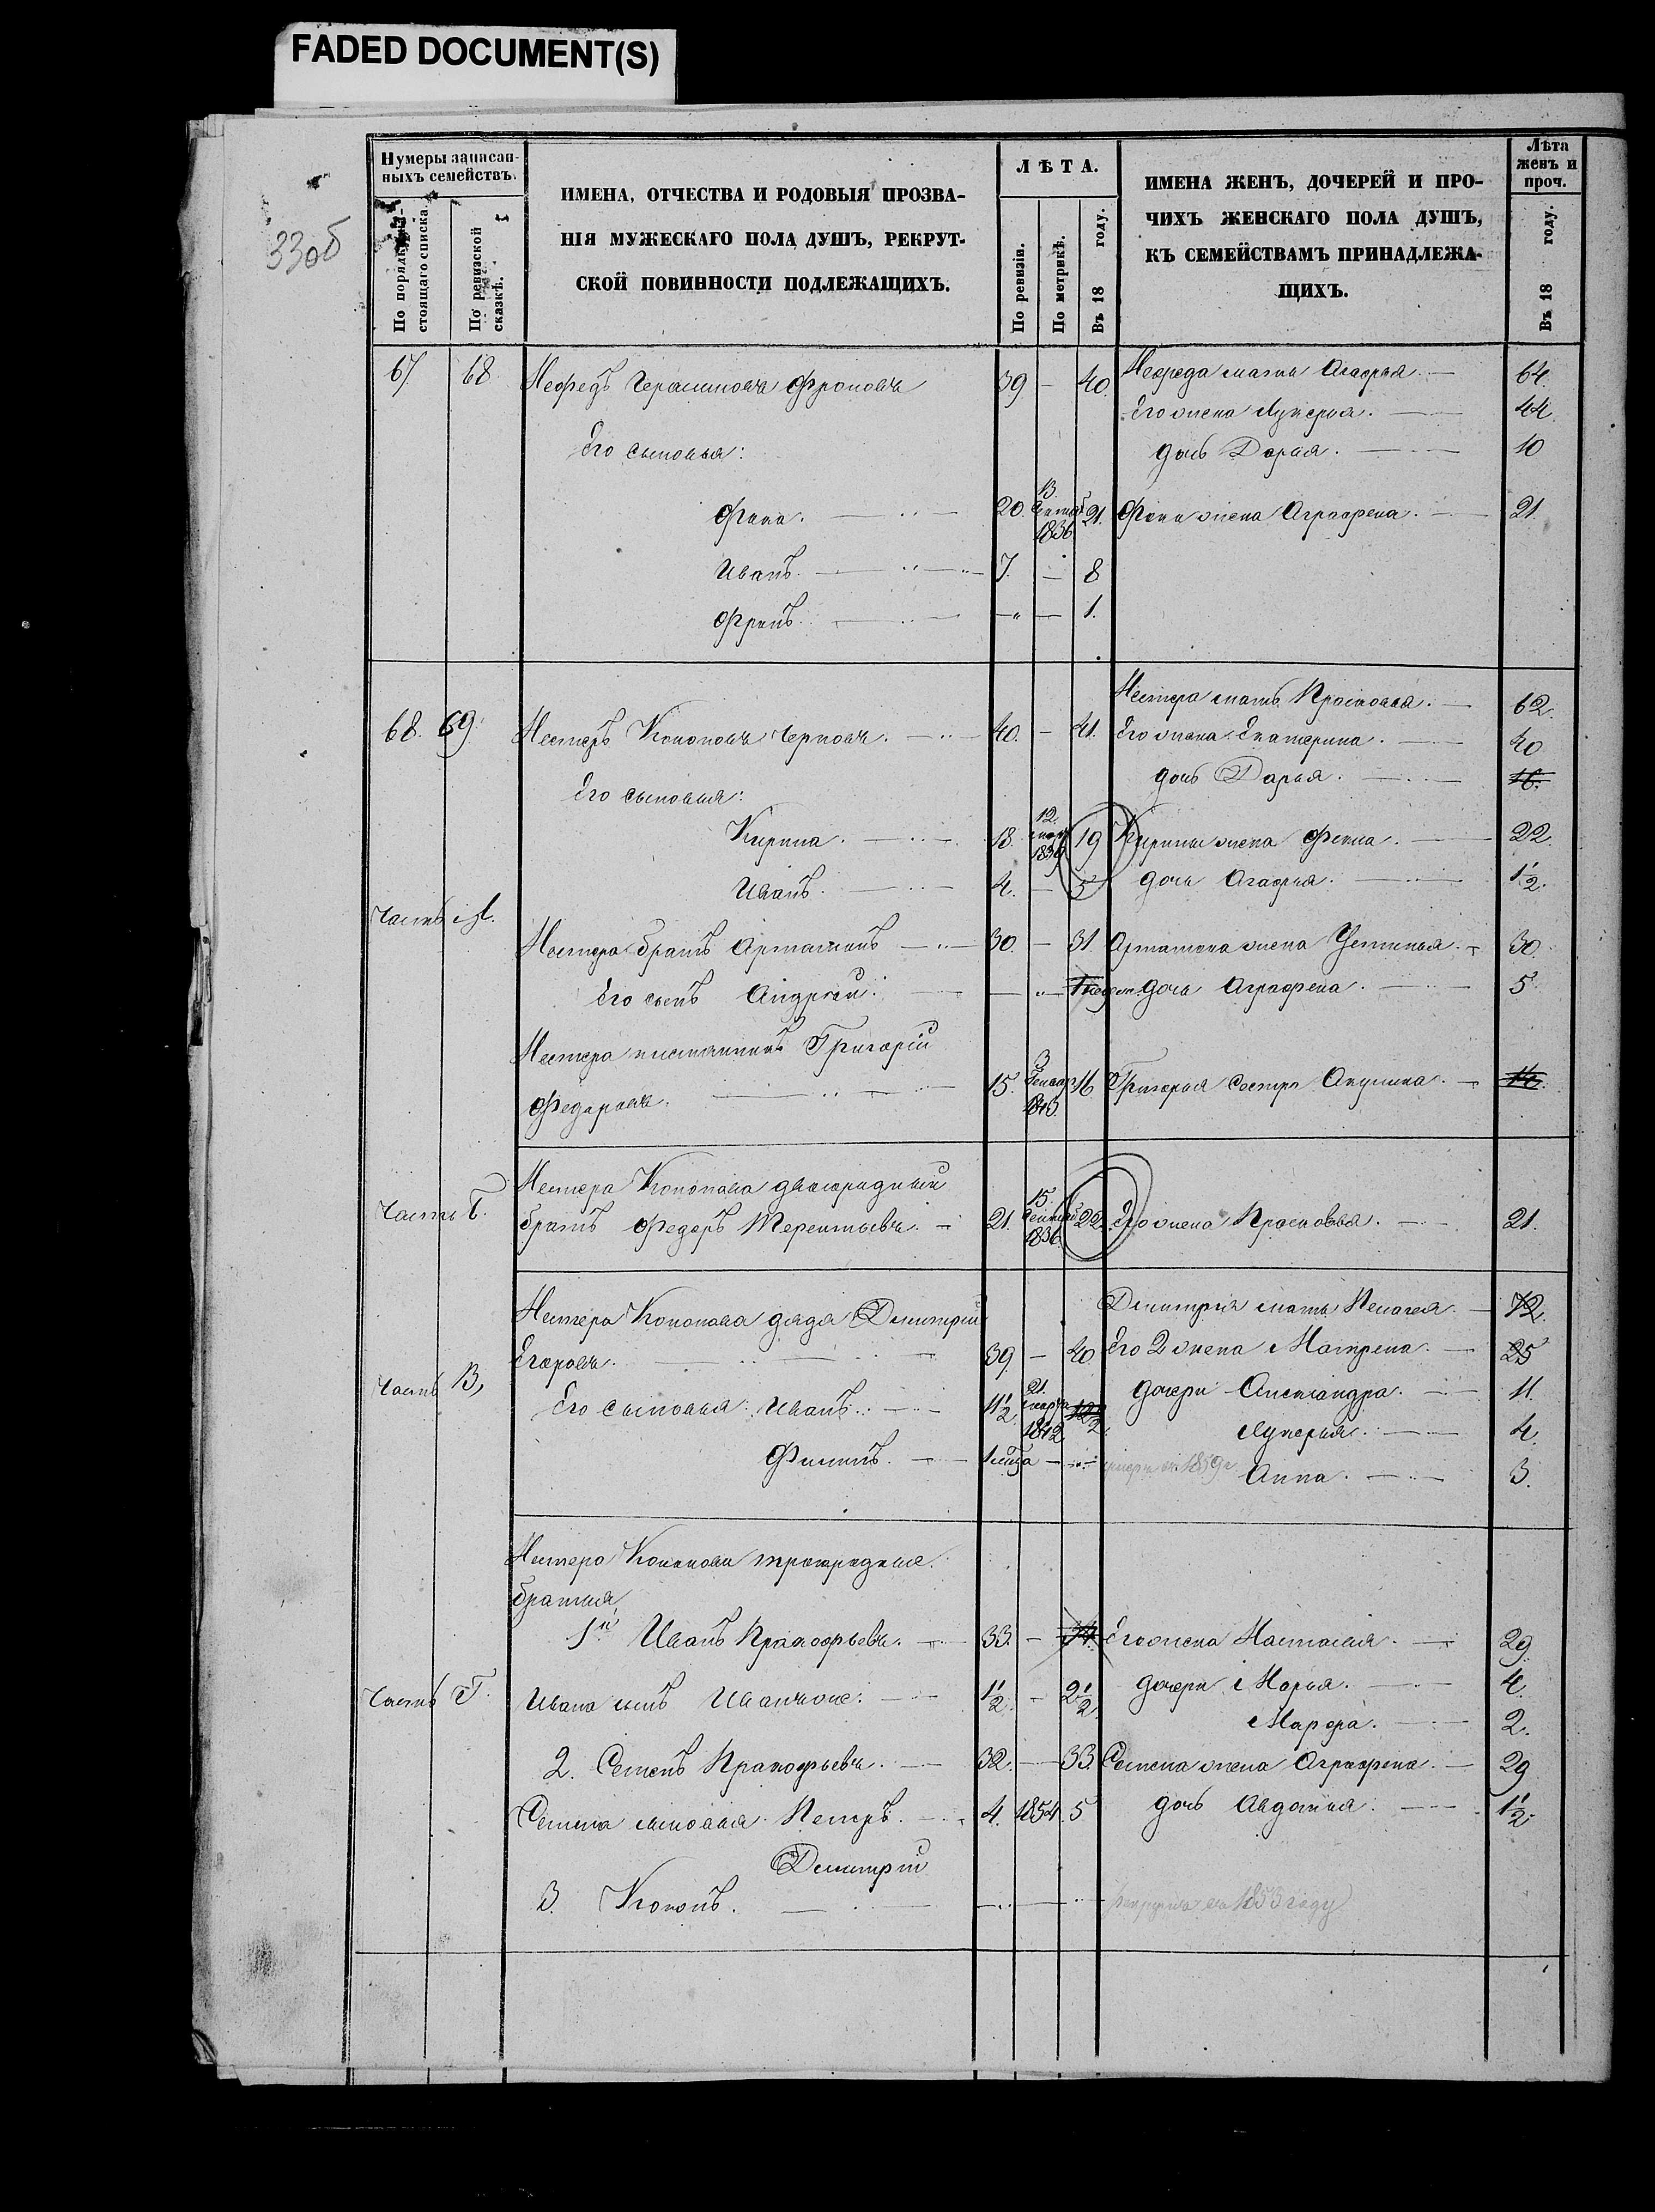 FADED DOCUMENT(S)
33об
Нумеры записан-
ныхъ семействъ.
По порядку на-
стоящаго списка.
По ревизской
сказкѣ.
ИМЕНА, ОТЧЕСТВА И РОДОВЫЯ ПРОЗВА-
НІЯ МУЖЕСКАГО ПОЛА ДУШЪ, РЕКРУТ-
СКОЙ ПОВИННОСТИ ПОДЛЕЖАЩИХЪ.
ЛѢТА.
По ревизіи.
По метрикѣ.
Въ 18 году.
ИМЕНА ЖЕНЪ, ДОЧЕРЕЙ И ПРО-
ЧИХЪ ЖЕНСКАГО ПОЛА ДУШЪ,
КЪ СЕМЕЙСТВАМЪ ПРИНАДЛЕЖА-
ЩИХЪ.
Лѣта
женъ и
проч.
Въ 18 году.
67. 68 Нефедъ Герасимовъ Фроловъ 39 — 40. Нефеда мать Агафья. 64.
Его жена Лукерья. 44
Его сыновья: дочь Дарья. 10
Фока. 20. 13 1836 21. Фоки жена Аграфена. 21.
Иванъ. 7. — 8
Фролъ. — 1.
Нестера мать Прасковья. 62.
68. 69. Нестеръ Кононовъ Черновъ. 40. — 41. Его жена Екатерина. 40
дочь Дарья. 16.
Его сыновья:
Кирила. 18. 12. 19 Кирилы жена Фекла. 22.
Иванъ. 4. — 5 дочь Агафья. 1½.
Часть А.
Нестера братъ Артамонъ 30. — 31. Артамона жена Устинья. 30.
Его сынъ Андрей. дочь Аграфена. 5
Нестера Григорій
Федоровъ. 15. 3 Генвар 1843 16 Григорья сестра Акулина. 14.
Нестера Кононова двоюродный
Часть Б. братъ Федоръ Терентьевъ. 21. 15. 1836 22. Его жена Прасковья. 21.
Дмитрія мать Пелагея. 72.
Нестера Кононова дядя Дмитрій
Егоровъ. 39. — 40. Его 2 жена Матрена. 25
Часть В, Его сыновья: Иванъ. 11½ 21. марта 1842 12½ дочери Александра. 11.
Лукерья. 4.
Филипъ. 1 мѣца 1859 г Анна. 3.
Нестера Кононова троюродные
братья
1й Иванъ Прокофьевъ. 33. — 34. Его жена Настасья. 29.
Часть Г. Ивана сынъ 1½. — 2½ дочери Марья. 4.
Марфа. 2.
2. Семенъ Прокофьевъ. 32. — 33. Семена жена Аграфена. 29
Семена сыновья Петръ. 4. 1854. 5 дочь Авдотья. 1½.
Дмитрій
3. Кононъ. въ 1853 году